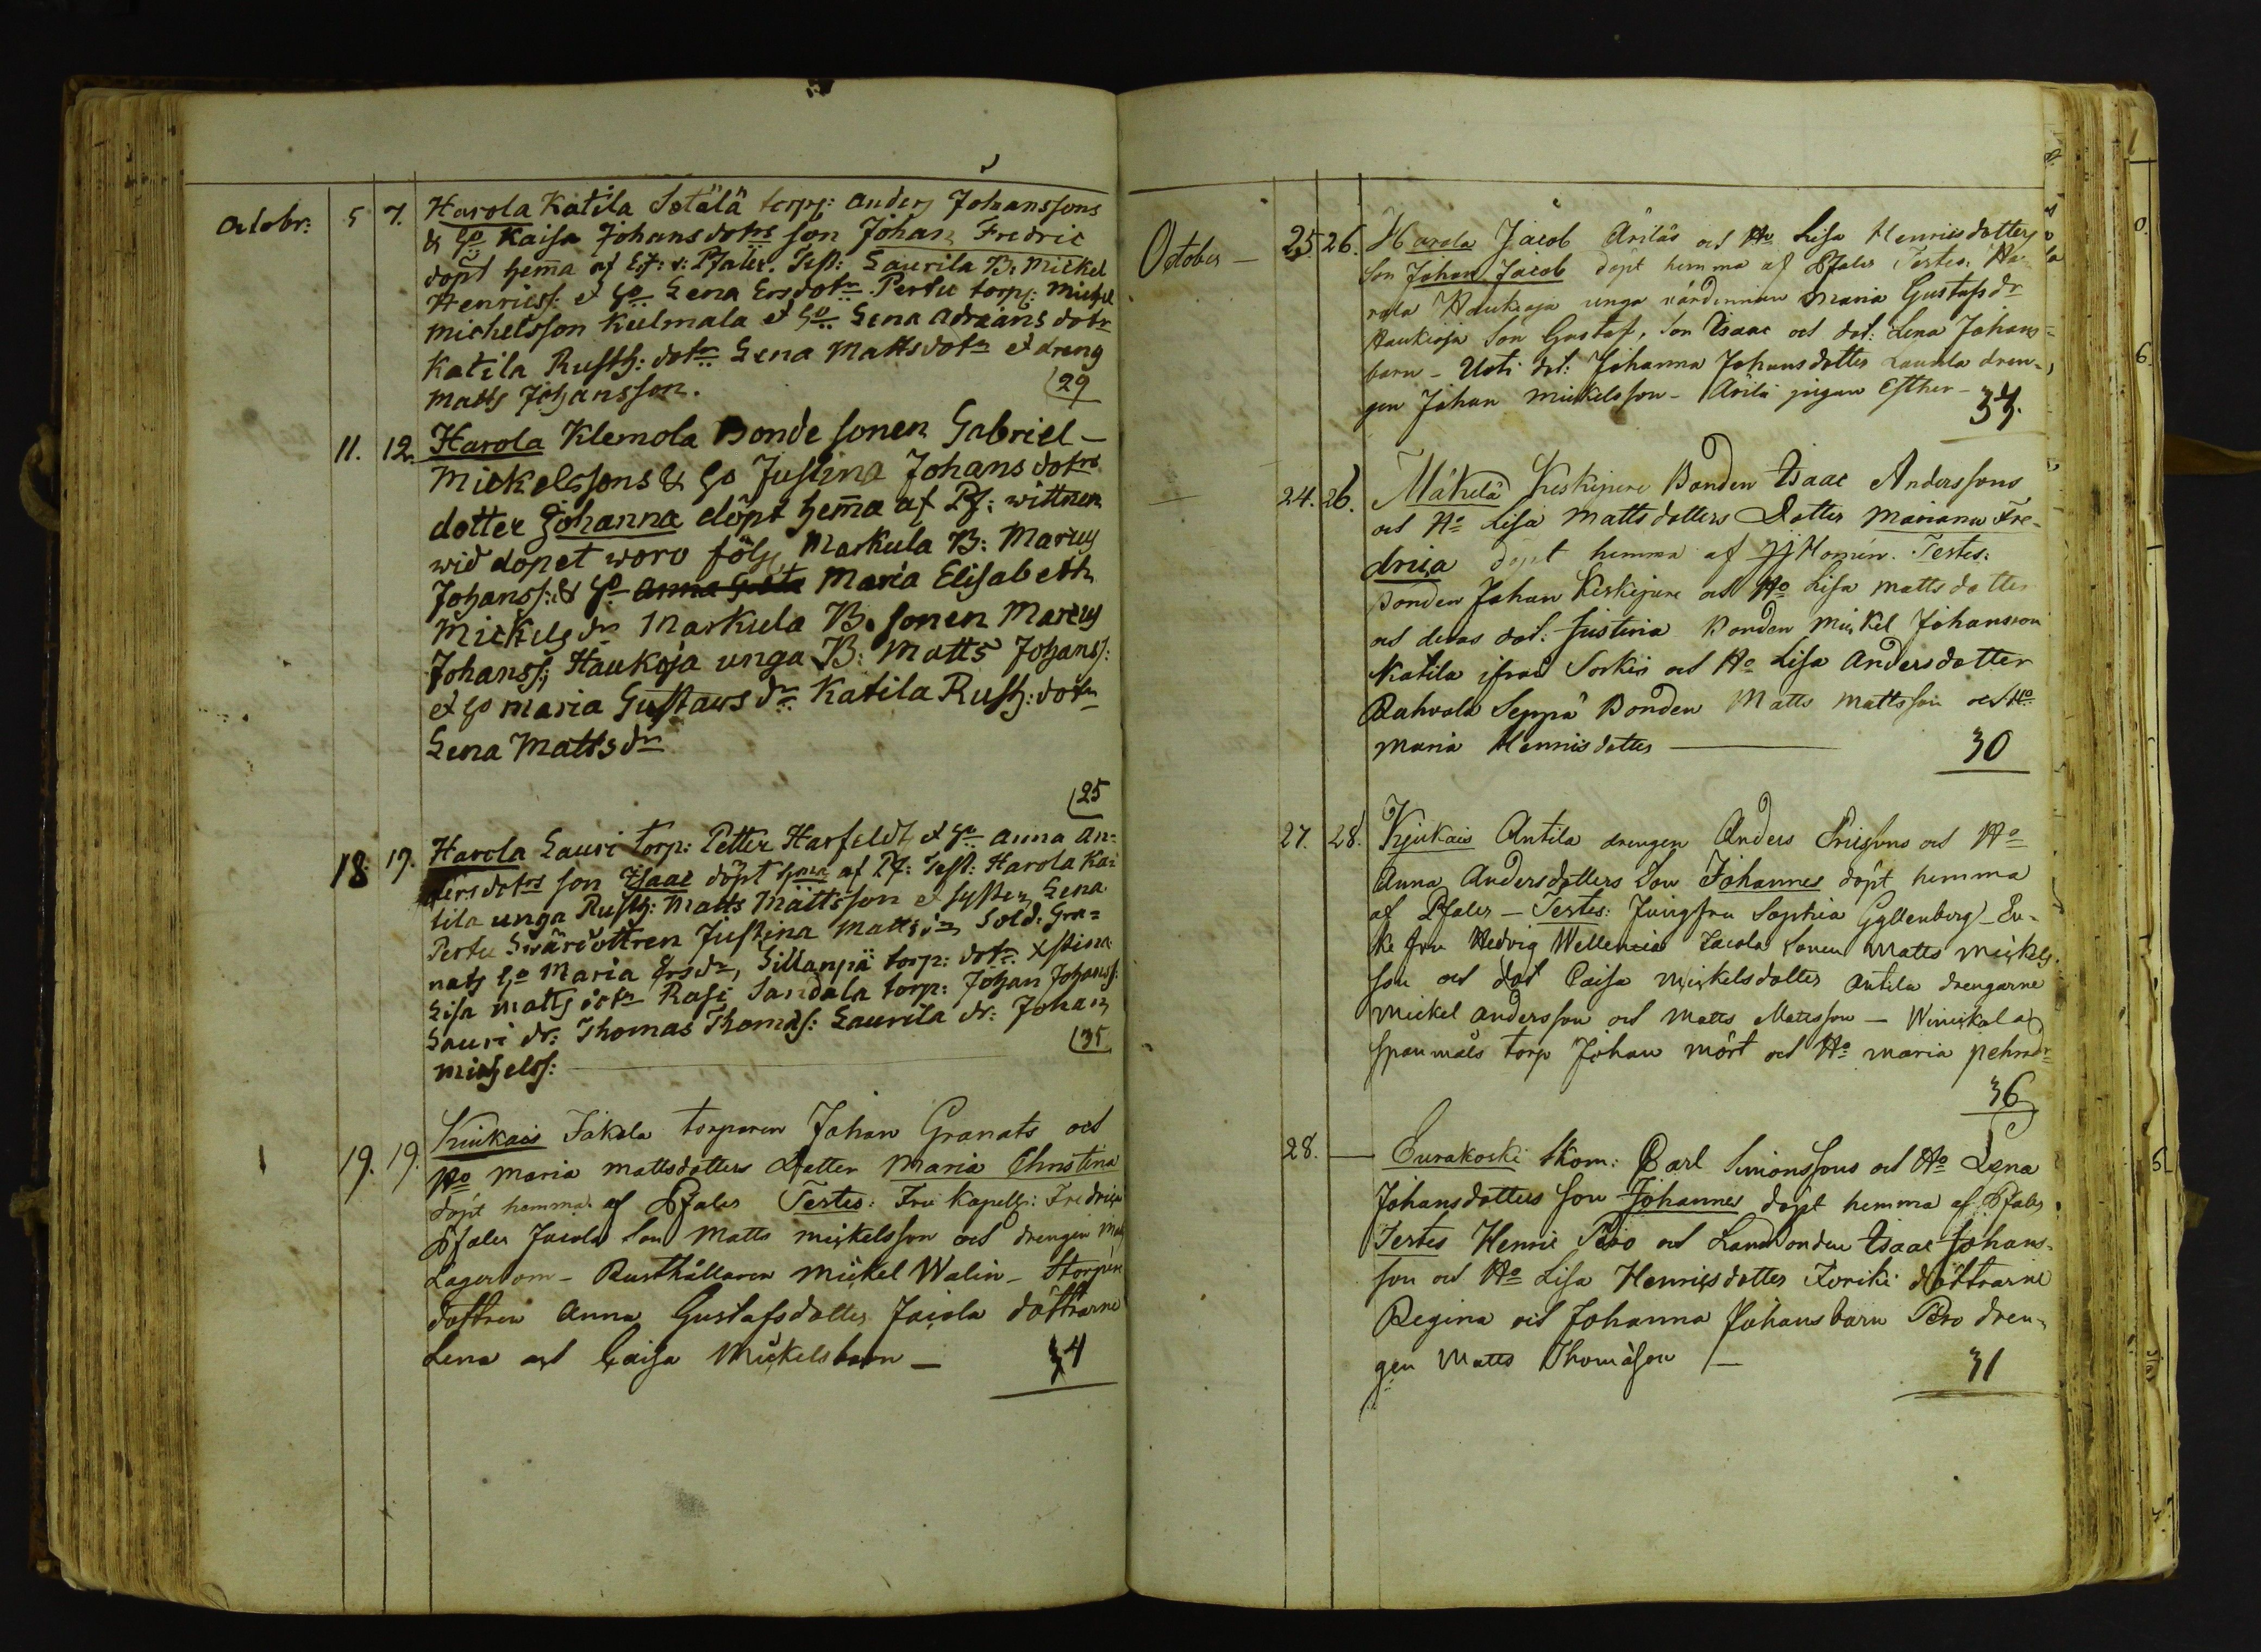 octobr: 5 7. Harola Katila Sotälä torp: Anders Johanssons
& Ho Kaisa Johansdotrs son Johan Fredric
döpt hem̄a af Pfaler. Test: Laurila B: Mickel
Henricss: et Ho Lena Ersdotr. Pertu torp: Mickel
Michelsson Keelmala et Ho Lena Adrians dotr
Katila Rusth: dotr Lena Mattsdotr et dreng
Matts Johansson. 29
11. 12. Harola Klemola Bonde sonen Gabriel
Mickelssons & Ho Justina Johans dotrs
dotter Johanna döpt hem̄a af Pf: wittnen
wid dopet woro följ. Markula B: Marcus
Johanss: & Ho Anna Greta Maria Elisabeth
Mickels dr Markula B. sonen Marcus
Johanss; Haukoja unga B: Matts Johanss:
et Ho Maria Gustaws dr. Katila Rusth: dotr
Lena Mattsdr
25
18. 19. Harola Lauri torp: Petter Harfeldt et Ho Anna An-
dersdotrs son Isaac döpt hema af Pf: Test: Harola Ka-
tila unga Rusth: Matts Mattsson et systern Lena
Pertu Swärdottren Justina Mattsdr, Sold: Gra-
nats Ho Maria Ersdr, Sillanpä torp: dotr. Xstina
Lisa Matts dotr Rasi Sandala torp: Johan Johanss:
Lauri dr: Thomas Thomass: Laurila dr: Johan
Michelss: 35
19. 19. Kiukais Jakola torparen Johan Granats och
Ho Maria Mattsdotters Dotter Maria Christina
döpt hemma af Pfaler Testes: Fru Kapell: Fredrica
Pfaler Jacola Son Matts Mickelsson och drengen
Lagerbom - Rusthållaren Mickel Walin - Storpere
dottren Anna Gustafsdotter Jacola döttrarne
Lena och Caisa Mickelsbarn — 34
October — 25. 26. Harola Jacob Äriläs och Ho Lisa Henricsdotters
Son Johan Jacob döpt hemma af Pfaler Testes: Ha-
rola Haukioja unga värdinnan Maria Gustafsdr
Haukioja Son Gustaf, Son Isaac och dot: Lena Johans-
barn - Uoti dot: Johanna Johansdotter Laurila dren-
gen Johan Mickelsson - Ärilä pigan Esther - 37.
— 24. 26. Mäkelä Keskipere Bonden Isaac Anderssons
och Ho Lisa Mattsdotters Dotter Mariana Fre-
drica döpt hemma af JJ Homén. Testes:
Bonden Johan Keskipere och Ho Lisa Mattsdotter
och deras dot: Justina Bonden Mickel Johansson
Katila ifrån Sorkis och Ho Lisa Andersdotter
Rahvola Seppä Bonden Matts Mattsson och Ho
Maria Henricsdotter — 30
27. 28. Kjukais Antila drengen Anders Ericsons och Ho
Anna Andersdotters Son Johannes döpt hemma
af Pfaler - Testes: Jungfru Sophia Gyllenberg - En-
ke fru Hedvig Wellenia Jacola Sonen Matts Mickels-
son och dot Caisa Mickelsdotter Antila drengarne
Mickel Andersson och Matts Matsson - Winikala
spanmåls torp Johan Mört och Ho Maria Pehrsdr
36
28. — Eurakoski Skom: Carl Simonssons och Ho Lena
Johansdotters Son Johannes döpt hemma af Pfaler
Testes Henric Pero och Landbonden Isaac Johans-
son och Ho Lisa Henricsdotter Foriki döttrarne
Regina och Johanna Johansbarn Pero dren-
gen Matts Thomasson — 31